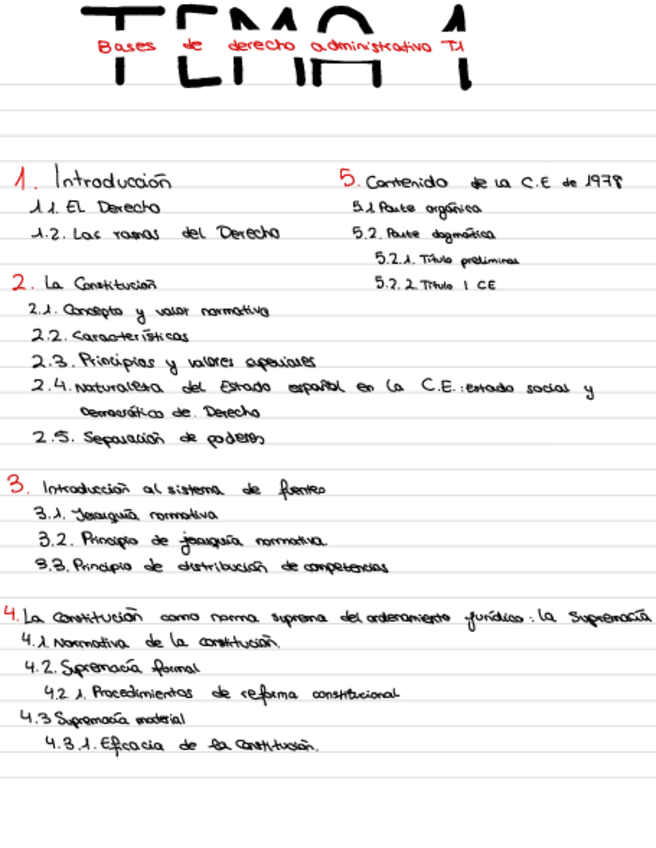 TEMA 1
Bases de derecho administrativo T1
1. Introducción
1.1. EL Derecho
1.2. Las ramas del Derecho
2. La Constitución
2.1. Concepto y valor normativo
2.2. Características
2.3. Principios y valores superiores
2.4. Naturaleza del Estado español en la C.E.: estado social y
Democrático de Derecho
2.5. Separación de poderes
3. Introducción al sistema de fuentes
3.1. Jerarquía normativa
3.2. Principio de jerarquía normativa
3.3. Principio de distribución de competencias
4. La Constitución como norma suprema del ordenamiento jurídico: la Supremacía
4.1. Normativa de la constitución.
4.2. Supremacía formal
4.2.1. Procedimientos de reforma constitucional
4.3 Supremacía material
4.3.1. Eficacia de la Constitución.
5. Contenido de la C.E de 1978
5.1 Parte orgánica
5.2. Parte dogmática
5.2.1. Título preliminar
5.2.2 Título I CE